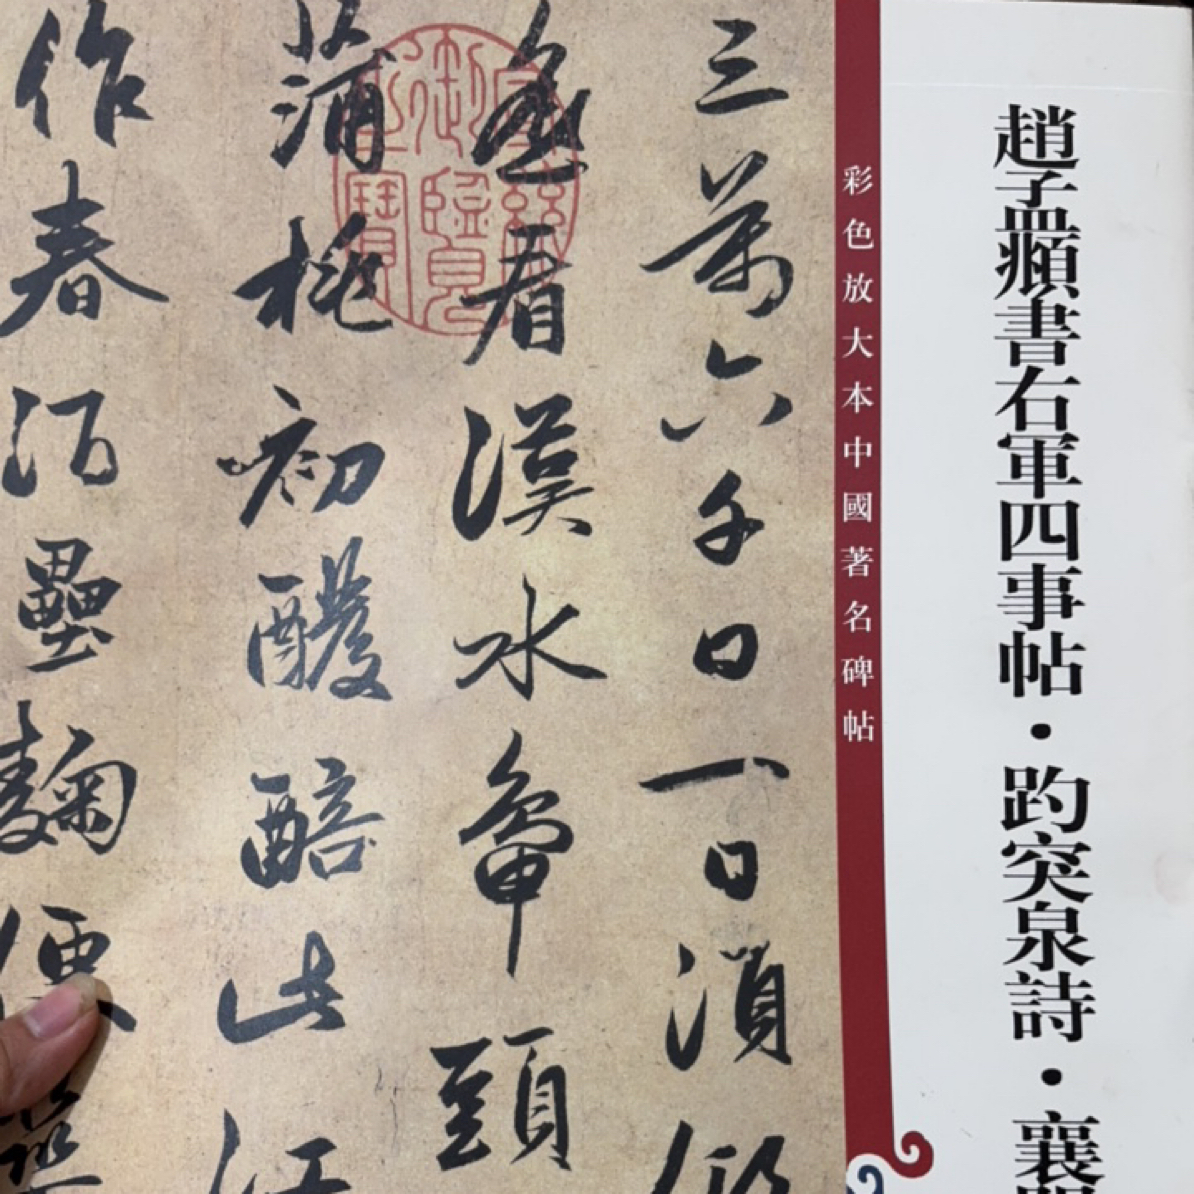 趙孟頫書右軍四事帖·趵突泉詩·襄
彩色放大本中國著名碑帖
三萬六千日一日須
遙看漢水鴨頭
蒲桃初醱醅此江
作春酒壘麴便
宣統御覽之寶